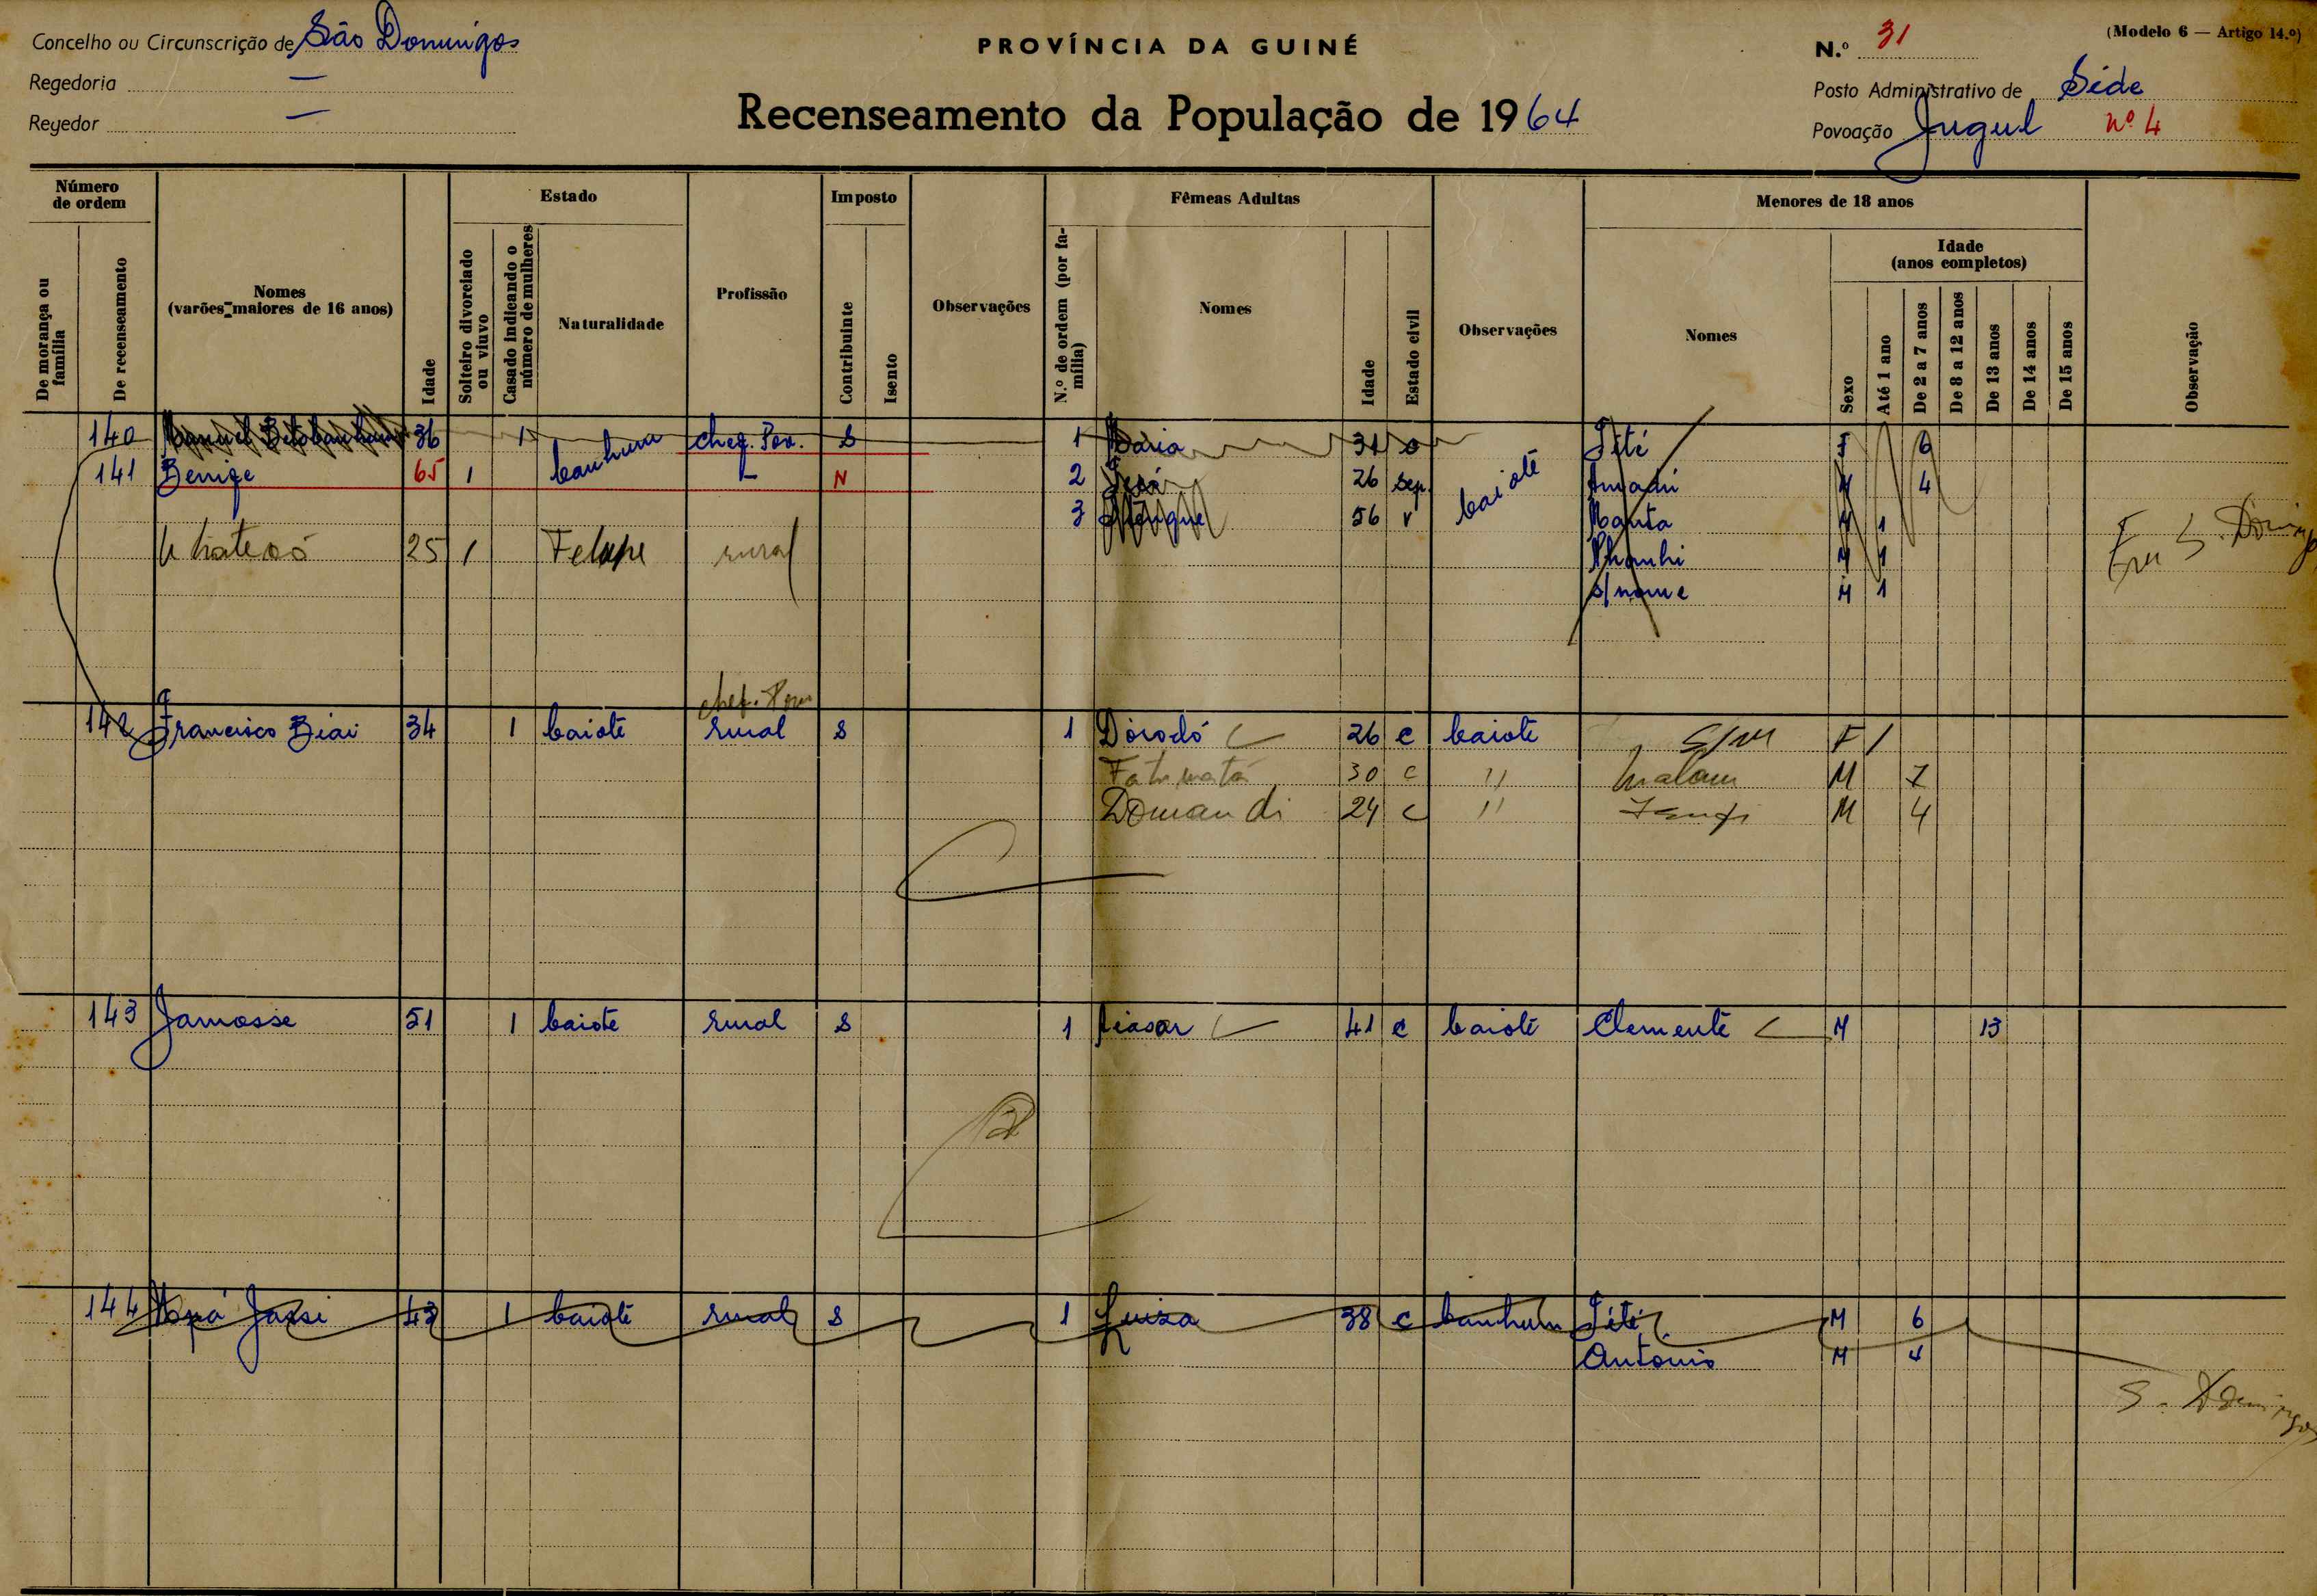 Concelho ou Circunscrição de São Domingos
Regedoria —
Reyedor —
PROVÍNCIA DA GUINÉ
Recenseamento da População de 1964
(Modelo 6 — Artigo 14.º)
N.º 31
Posto Administrativo de Séde
Povoação Jugul nº 4
Número de ordem
De morança ou família
De recenseamento
Nomes (varões maiores de 16 anos)
Idade
Estado
Solteiro divorciado ou viuvo
Casado indicando o número de mulheres
Naturalidade
Profissão
Imposto
Contribuinte
Isento
Observações
Fêmeas Adultas
N.º de ordem (por família)
Nomes
Idade
Estado civil
Observações
Menores de 18 anos
Nomes
Sexo
Idade (anos completos)
Até 1 ano
De 2 a 7 anos
De 8 a 12 anos
De 13 anos
De 14 anos
De 15 anos
Observação
140 Manuel 36 1 banhum chef. Pov. S 1 Maria 31 Tité F 6
141 65 1 — N 2 26 sep. baioté Amadú M 4
3 56 v M 1
25 1 Felupe rural M 1 Em S. Domingos
s/nome M 1
chef. Pov.
142 Francisco Biai 34 1 baioté rural S 1 Dorodó 26 c baioté S/N F 1
Fatumatá 30 c " Malam M 7
Domandi 24 c " M 4
143 Jamosse 51 1 baiote rural S 1 41 c baioté Clemente M 13
144 Jassi 43 1 baioté rural S 1 Luiza 38 c banhum Tité M 6
Antonio M 4
S. Domingos